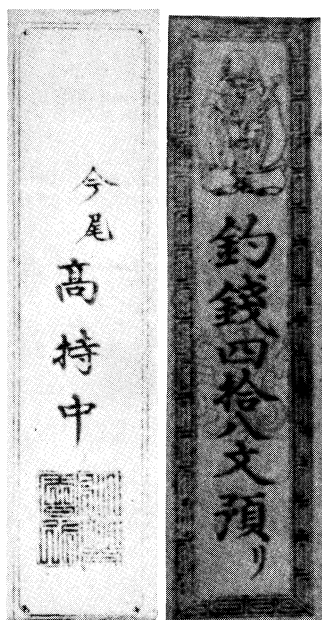 釣錢四拾八文預リ
今尾
高持中